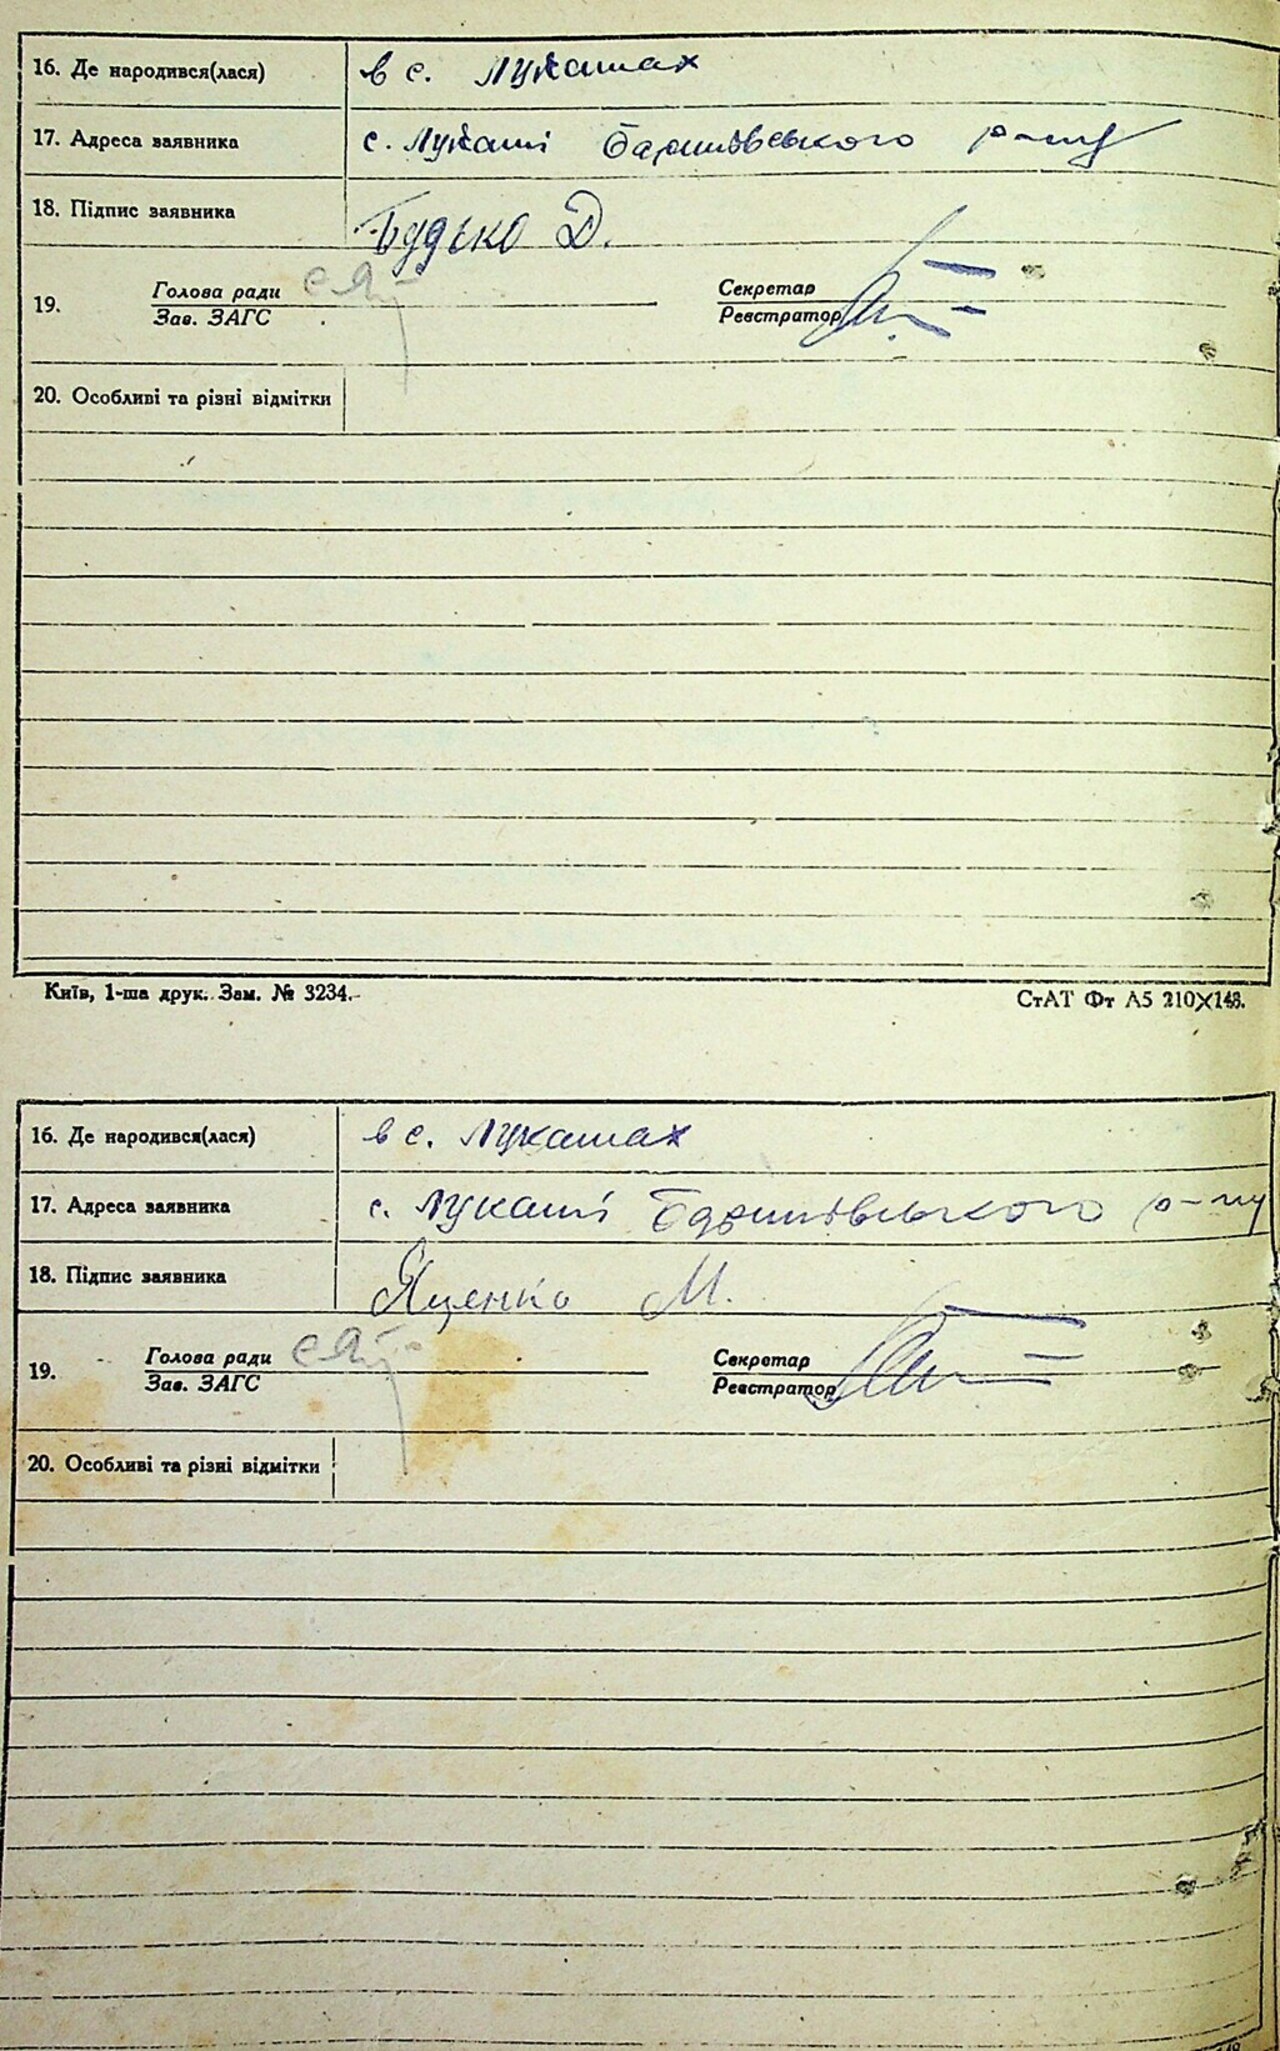 16. Де народився(лася) в с. Лукашах
17. Адреса заявника с. Лукаші Баришівського р-ну
18. Підпис заявника Будько Д.
Голова ради Секретар
19.
Зав. ЗАГС Реєстратор
20. Особливі та різні відмітки
Київ, 1-ша друк. Зам. № 3234. СтАТ Фт А5 210×148.
16. Де народився(лася) в с. Лукашах
17. Адреса заявника с. Лукаші Баришівського р-ну
18. Підпис заявника Яценко М.
Голова ради Секретар
19.
Зав. ЗАГС Реєстратор
20. Особливі та різні відмітки